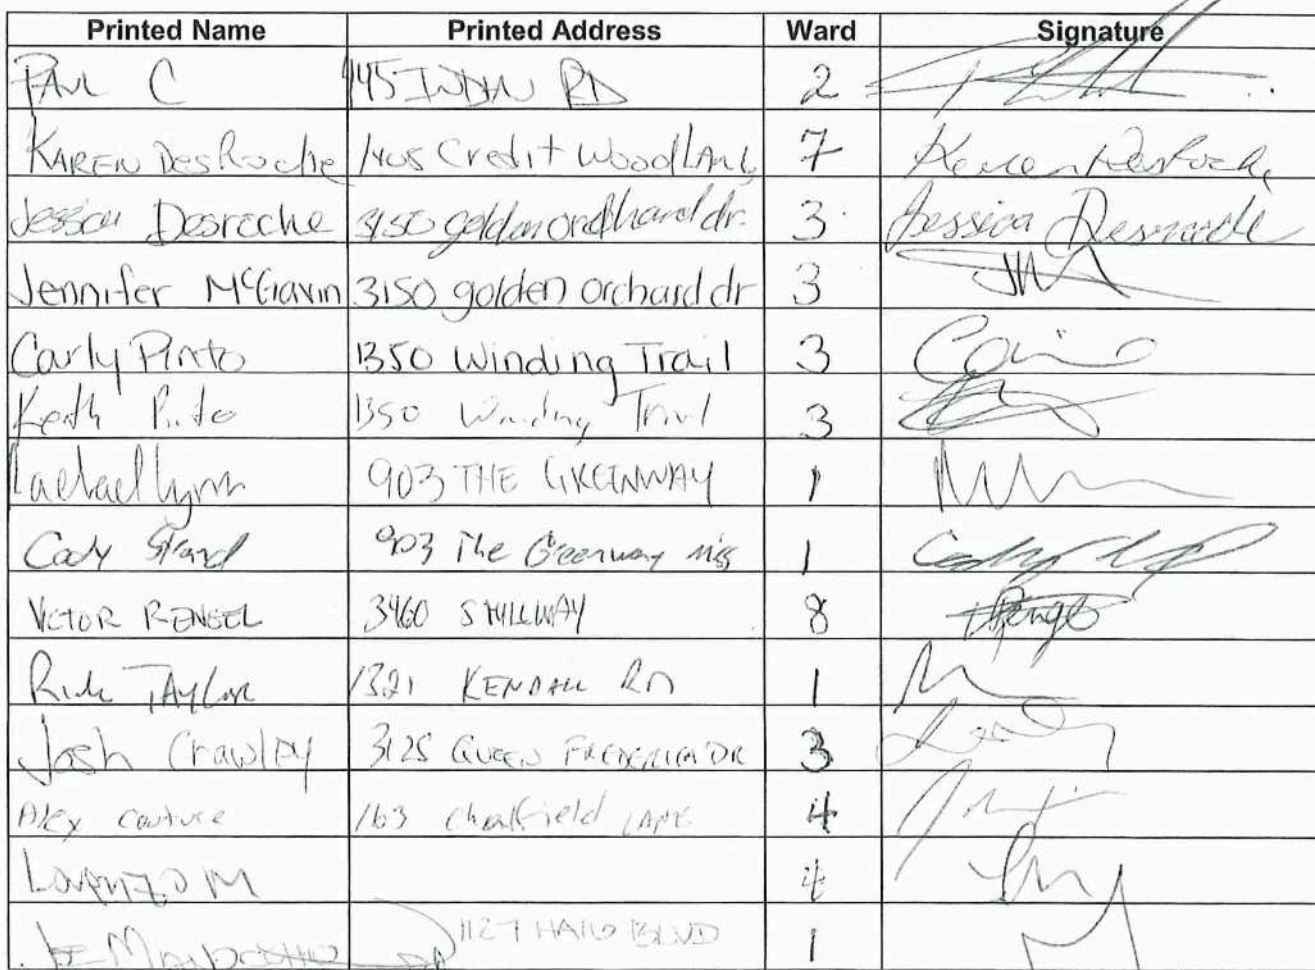 Printed Name Printed Address Ward Signature
Paul C 145 INDIAN RD 2
KAREN DesRoche 1405 Credit Woodland 7 Karen DesRoche
Jessica Desroche 3150 golden orchard dr. 3 Jessica Desroche
Jennifer McGavin 3150 golden orchard dr 3
Carly Pinto 1350 Winding Trail 3
Keith Pinto 1350 Winding Trail 3
Lynn 903 THE GREENWAY 1
Cody Strand 903 The Greenway Miss 1
VICTOR RENGEL 3460 STILLWAY 8
Rick TAYLOR 1321 KENDALL RD 1
Josh Crawley 3125 QUEEN FREDERICA DR 3
Alex couture 163 LANE 4
Lorenzo M 4
JOE 1127 HAIG BLVD 1